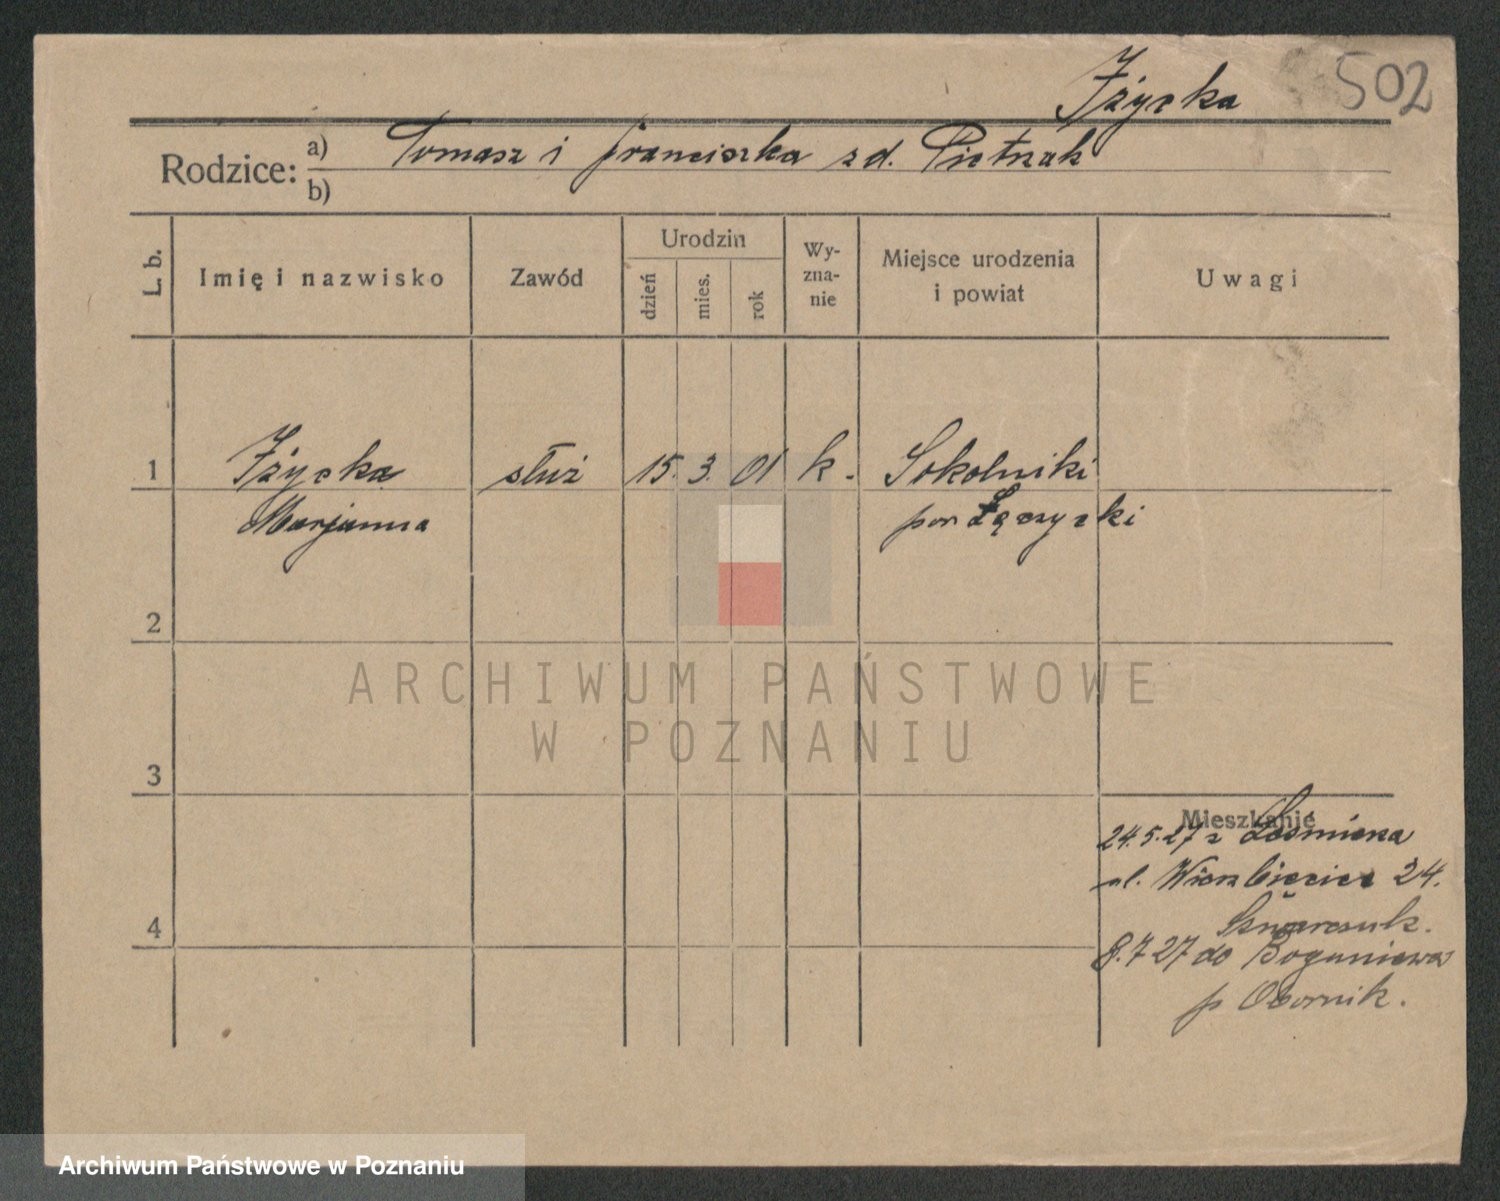 Iżycka 502
Rodzice: a) Tomasz i Franciszka z d. Pietrzak
b)
L. b.
Imię i nazwisko
Zawód
Urodzin
dzień
mies.
rok
Wy-
zna-
nie
Miejsce urodzenia
i powiat
Uwagi
1 Iżycka służ 15. 3. 01 k. Sokolniki
Marjanna pow Łęczycki
2
3
Mieszkanie
24.5.27 z
ul. Wierzbięcice 24.
4
8.7 27 do Boguniewa
p Obornik.
ARCHIWUM PAŃSTWOWE
W POZNANIU
Archiwum Państwowe w Poznaniu